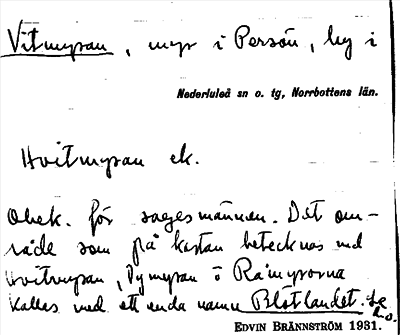 Vitmyran, myr i Persön, by i
Nederluleå sn o. tg, Norrbottens län.
Hvitmyran ek.
Obek. för sagesmännen. Det om-
råde som på kartan betecknas med
Hvitmyran, Dymyran o Råmyrorna
kallas med ett enda namn Blötlandet. Se
d.o.
EDVIN BRÄNNSTRÖM 1931.